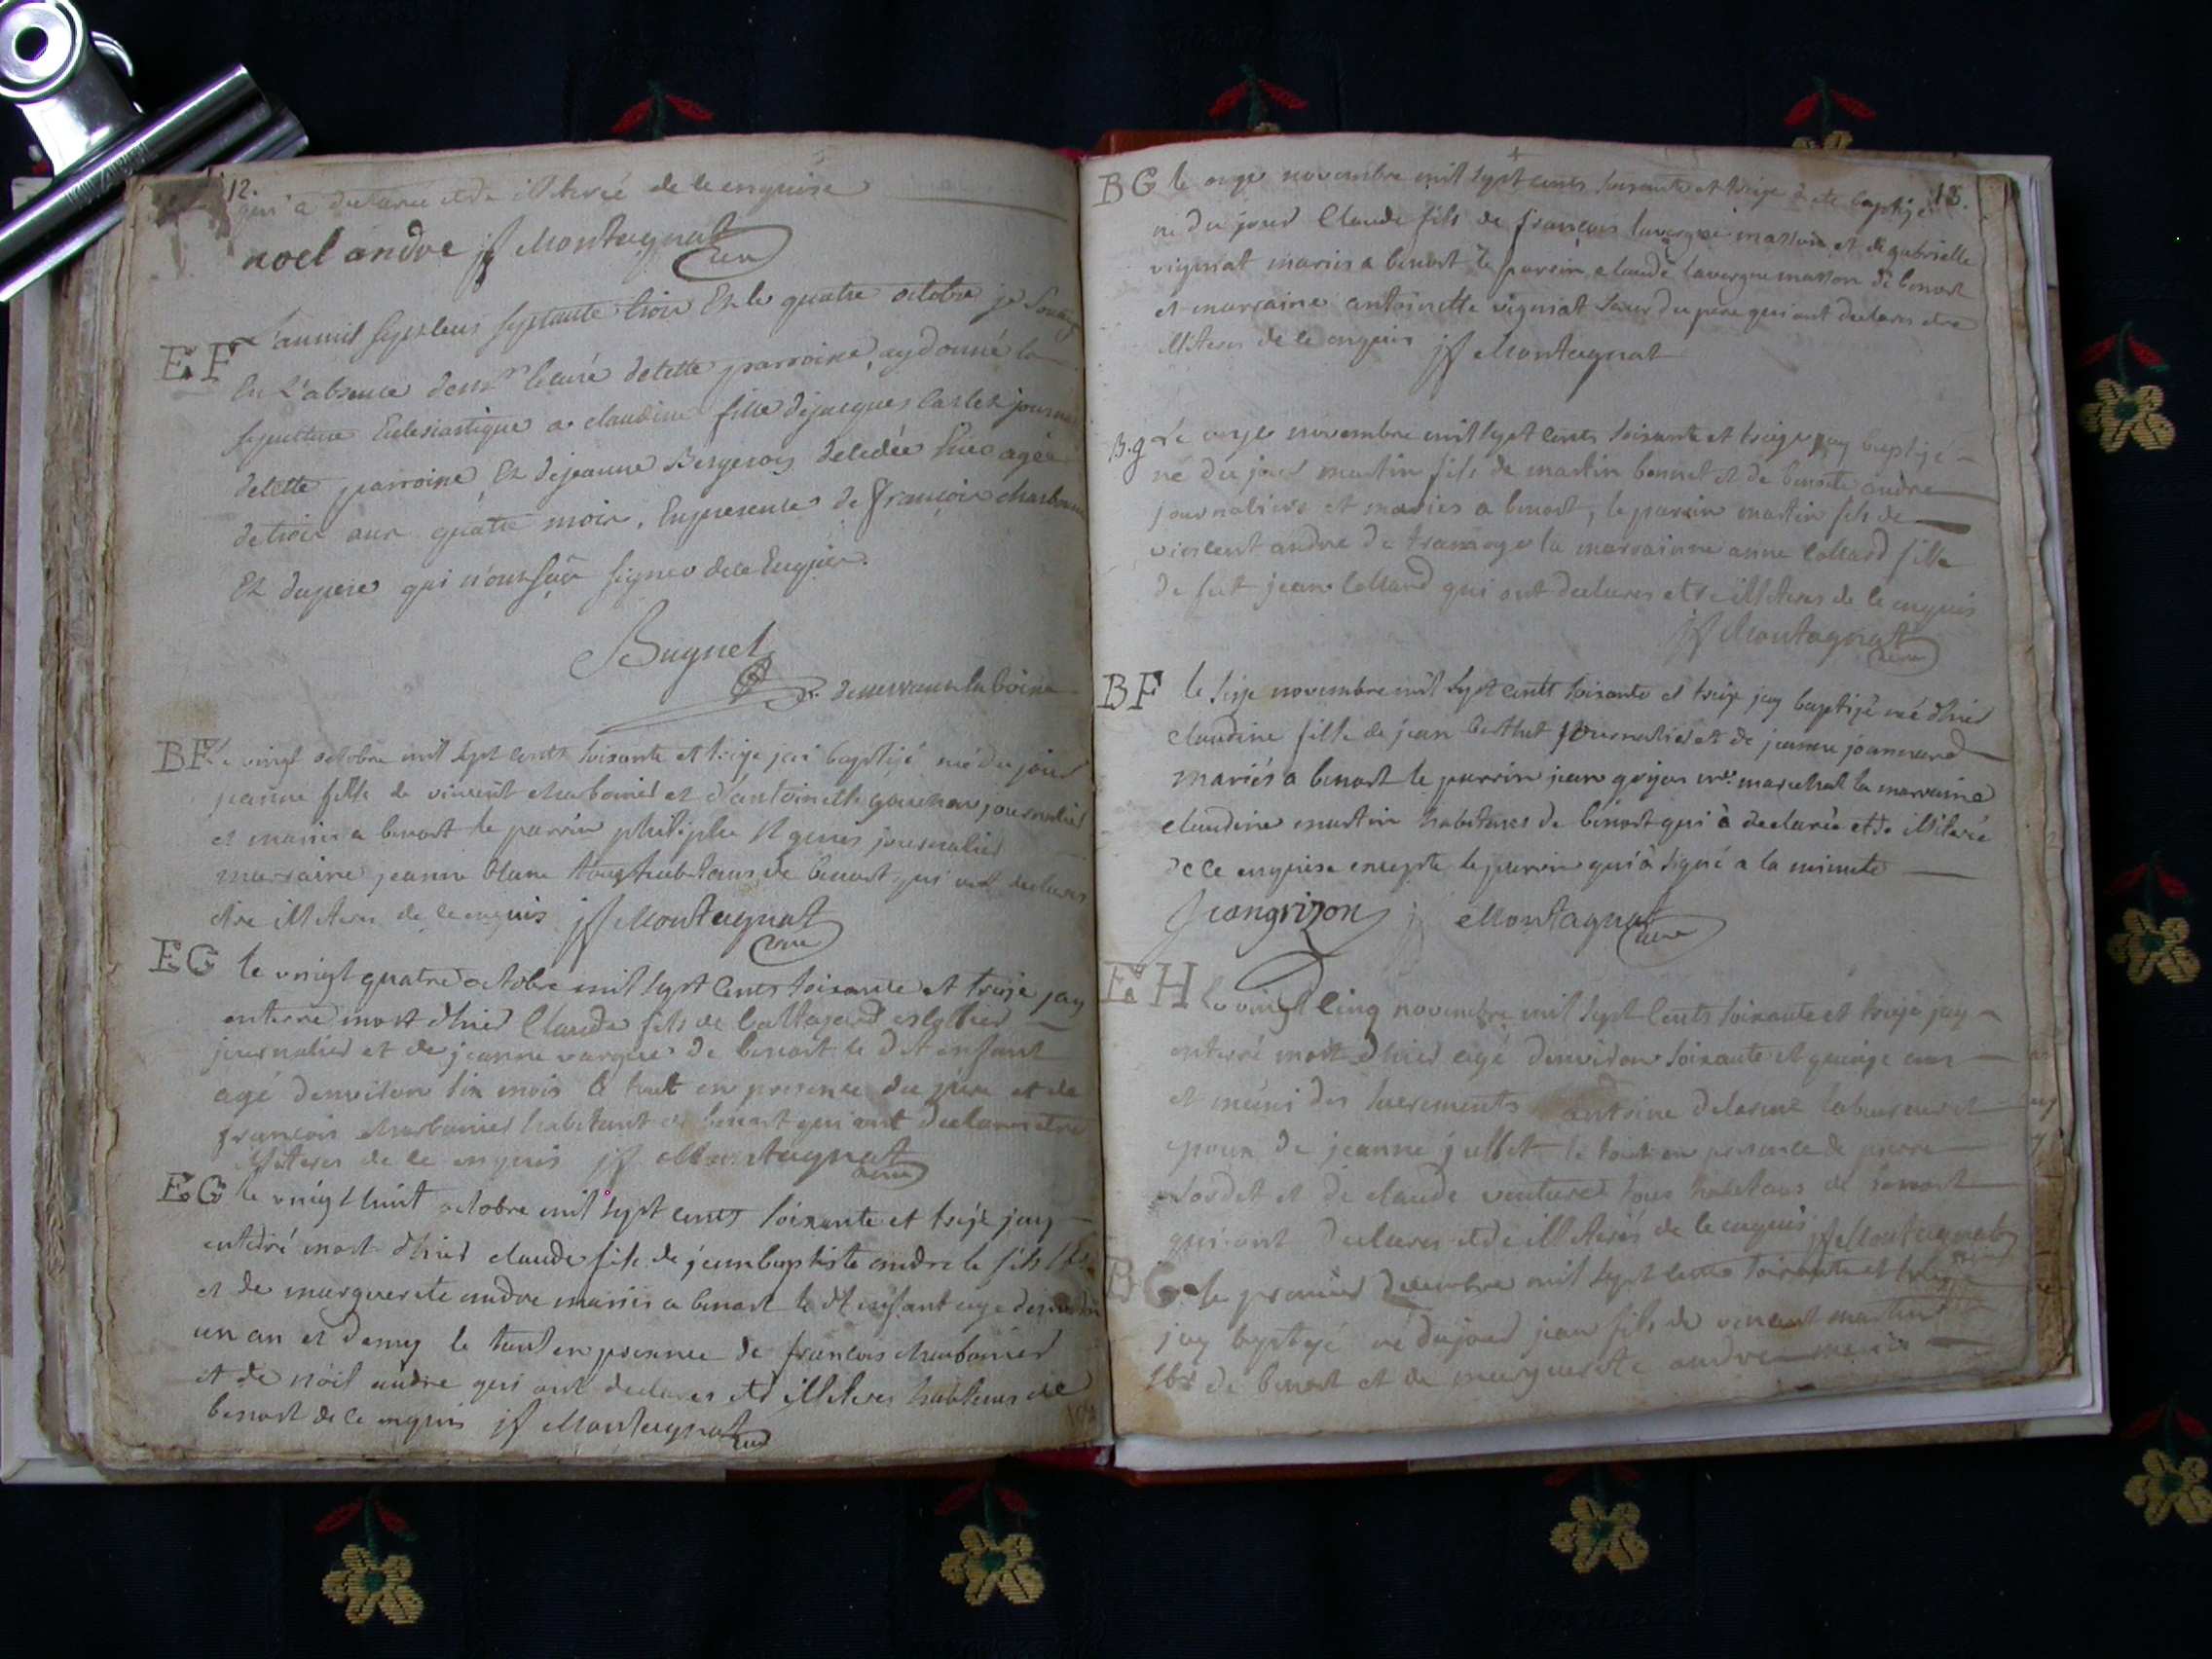 12.
qui a declaré etre illiteré de ce enquise
noel andre jf Montagnat
curé
EF
L'an mil sept cens septante trois Et le quatre octobre je
En L'absence de mr le curé de cette parroisse, ay donné la
sepulture Eclesiastique a claudine fille de jacques Carlet
de cette parroisse, Et de jeanne Bergeron decedée hier agée
de trois ans quatre mois, En presence de françois charbonnier
Et du pere qui n'ont sçu signer de ce Enquis.
Bugnet
BF Le vingt octobre mil sept cents soixante et treize jai baptizé né du jour
jeanne fille de vincent charbonier et d'antoinette gonchon journalier
et mariés a benost le parrin philiple st genis journalier
marraine jeanne blanc tous habitans de benost qui ont declares
etre illiteres de ce enquis jf Montagnat
curé
EG le vingt quatre octobre mil sept cents soixante et treize jay
enterré mort d'hier Claude fils de
journalier et de jeanne de benost le dt enfant
agé denviron six mois le tout en presence du pere et de
francois charbonier habitant de benost qui ont declares etre
illiteres de ce enquis jf Montagnat
curé
EG le vingt huit octobre mil sept cents soixante et treize jay
enterré mort d'hier claude fils de jean baptiste andre le fils
et de marguerite andre mariés a benost le dt enfant age denviron
un an et demy le tout en presence de francois charbonier
et de nöel andre qui ont declares etre illiteres habitans de
benost de ce enquis jf Montagnat
curé
13.
BG le onze novembre mil sept cents soixante et treize a ete baptizé
né du jour Claude fils de françois lavergne masson et de gabrielle
vigniat mariés a benost le parrin claude lavergne masson de benost
et marraine antoinette vigniat sœur du pere qui ont declares etre
illiteres de ce enquis jf Montagnat
B.g Le onze novembre mil sept cents soixante et treize jay baptizé
né du jour martin fils de martin bonnet et de benoite andre
journaliers et mariés a benost, le parrin martin fils de
vincent andre de la marrainne anne Collard fille
de fut jean Collard qui ont declares etre illiteres de ce enquis
jf Montagnat
curé
BF le seize novembre mil sept cents soixante et treize jay baptizé né d'hier
claudine fille de jean berthet journalier et de jeanne joannard
mariés a benost le parrin jean grizon mre marechal la marraine
claudine martin habitants de benost qui a declarée etre illiterée
de ce enquise excepte le parrin qui a signé a la minute
Jean grizon jf Montagnat
curé
EH le vingt cinq novembre mil sept cents soixante et treize jay
enterré mort d'hier agé denviron soixante et quinze ans
et muni des sacrements antoine delorme laboureur et
epoux de jeanne jullet le tout en presence de pierre
et de claude tous habitans de benost
qui ont declares etre illiterés de ce enquis jf Montagnat
curé
BG le premier decembre mil sept cents soixante et treize
jay baptizé né du jour jean fils de vincent martin
de benost et de marguerite andre mariés